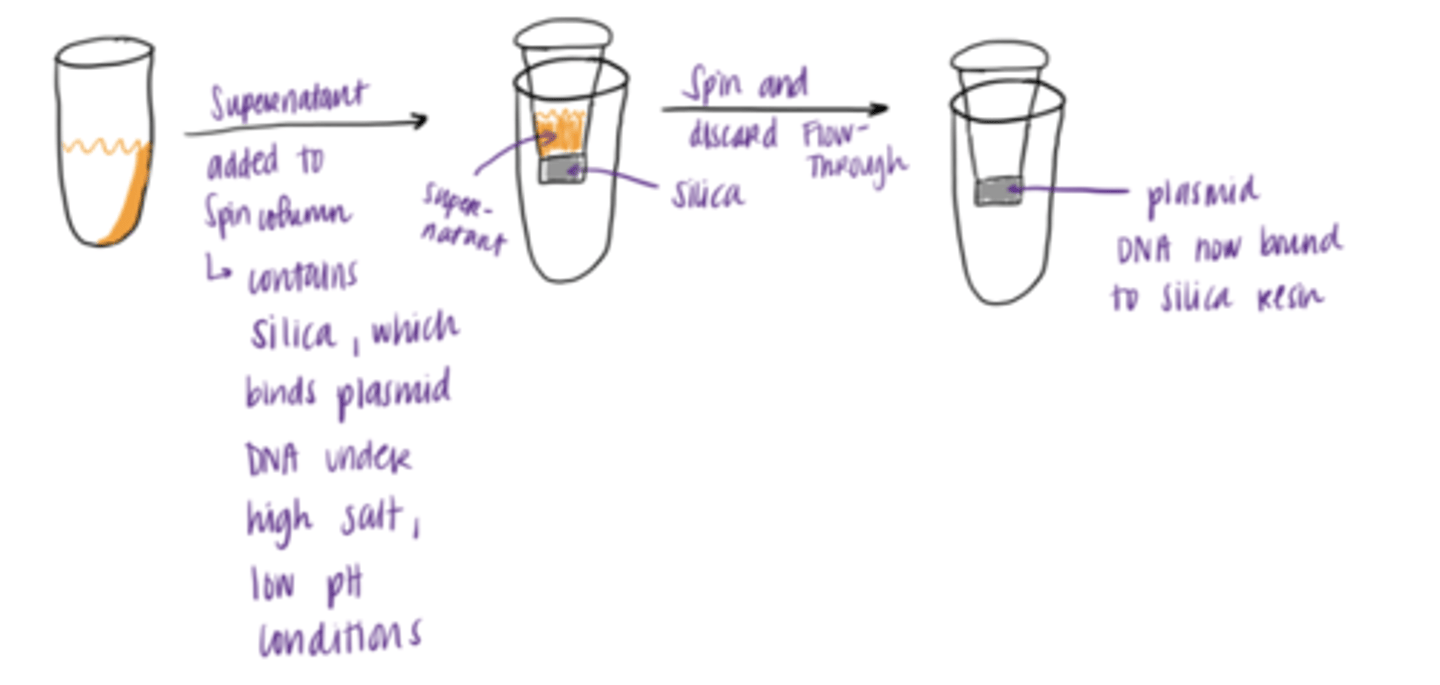 Supernatant
added to
Spin column
↳ contains
silica, which
binds plasmid
DNA under
high salt,
low pH
conditions
super-
natant
silica
Spin and
discard Flow-
Through
plasmid
DNA now bound
to silica resin